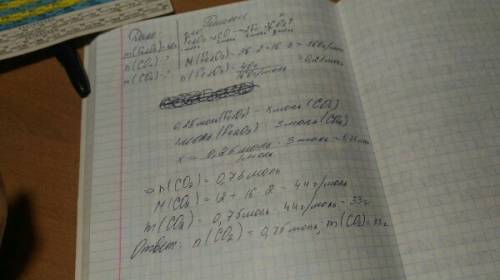 Дано: Решение
m(Fe₂O₃)=40г
n(CO₂)-?
m(CO₂)-?
Fe₂O₃+3CO
M(Fe₂O₃)=56·2+16·3=160г/моль
n(Fe₂O₃)=40г/160г/моль=0,25моль
0,25 моль(Fe₂O₃) - x моль(CO₂)
1моль(Fe₂O₃) - 3 моль(CO₂)
x = 0,25 моль · 3 моль
1моль
n(CO₂)=0,75моль
M(CO₂)=12+16·2=44г/моль
m(CO₂)=0,75моль·44г/моль=33г
Ответ: n(CO₂)=0,75 моль; m(CO₂)=33г